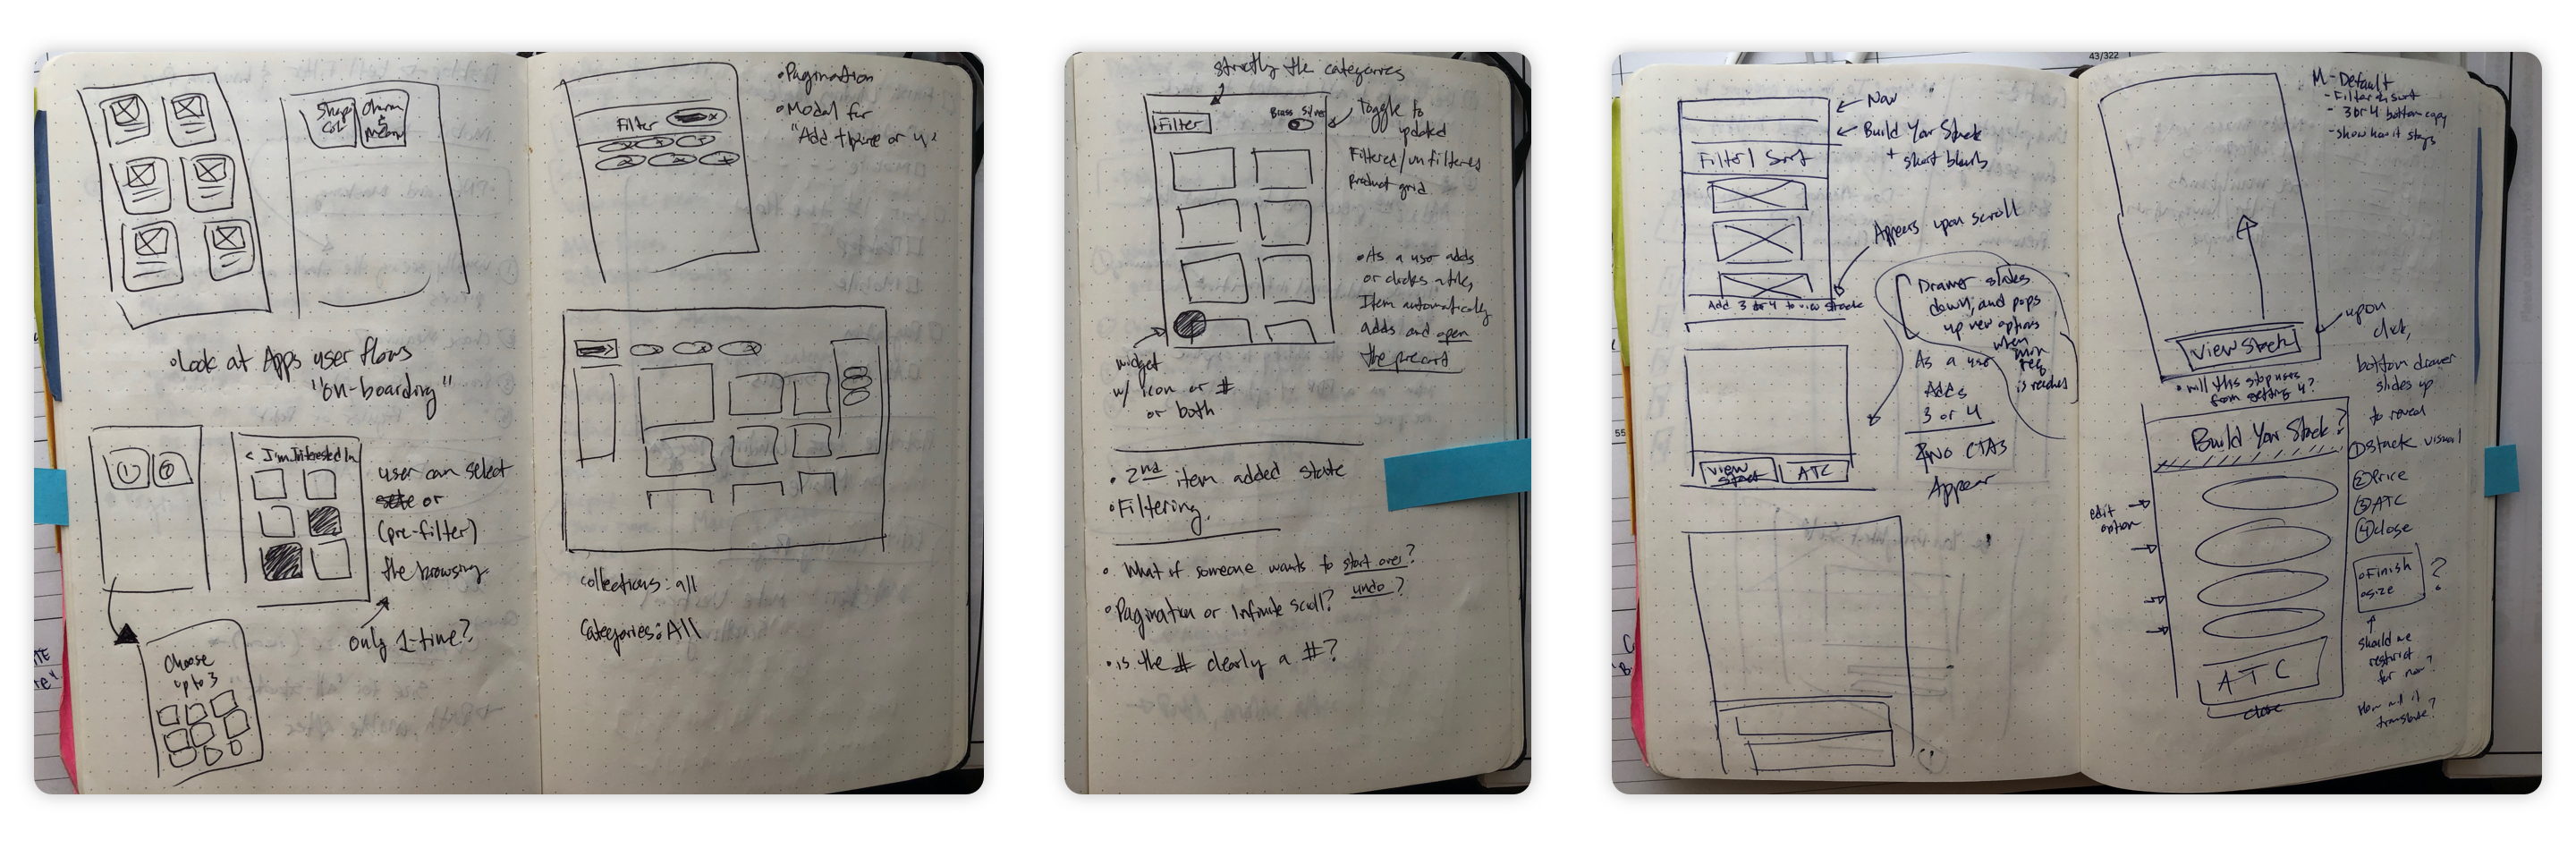 Shape
Charm
&
•Look at Apps user flows
"on-boarding"
1
2
< I'm Interested In
user can select
or
(pre-filter)
the browsing
only 1-time?
Choose
up to 3
•Pagination
•Modal for
"Add three or 4"
Filter
x
Collections: all
Categories: All
strictly the categories
Filter
Brass Silver
Toggle to
updated
Filtered/unfiltered
product grid
•As a user adds
or clicks a tile,
Item automatically
adds and open
the precart
widget
w/ icon or #
or both
• 2nd item added state
•Filtering.
• What if someone wants to start over?
undo?
•Pagination or Infinite scroll?
•is the # clearly a #?
43/322
Nav
Build Your Stack
+ short blurb
Filter | Sort
Appears upon scroll
Add 3 or 4 to view stack
Drawer slides
down, and pops
up new options
when
min
req
is reached
As a user
Adds
3 or 4
NO CTAS
Appear
View
Stack
ATC
55
M-Default
-Filter & sort
- 3 or 4 bottom copy
-show how it stays
View Stack
upon
click,
bottom drawer
slides up
to reveal
①Stack visual
②Price
③ATC
④close
• will this stop users
from getting 4?
Build Your Stack?
edit
option
•Finish
•size
?
should we
restrict
for now?
How will it
translate?
ATC
close